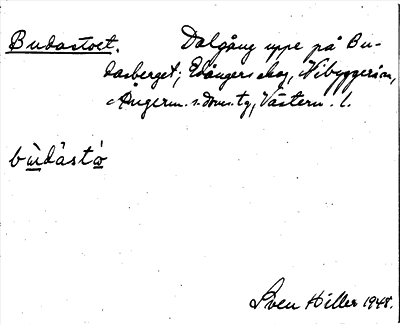 Budastoet. Dalgång uppe på Bu-
dasberget; Edångers skog, Nibyggerån,
Ångerm. s. domstg, Västern. l.
bùdàstó
Sven Hiller 1948.